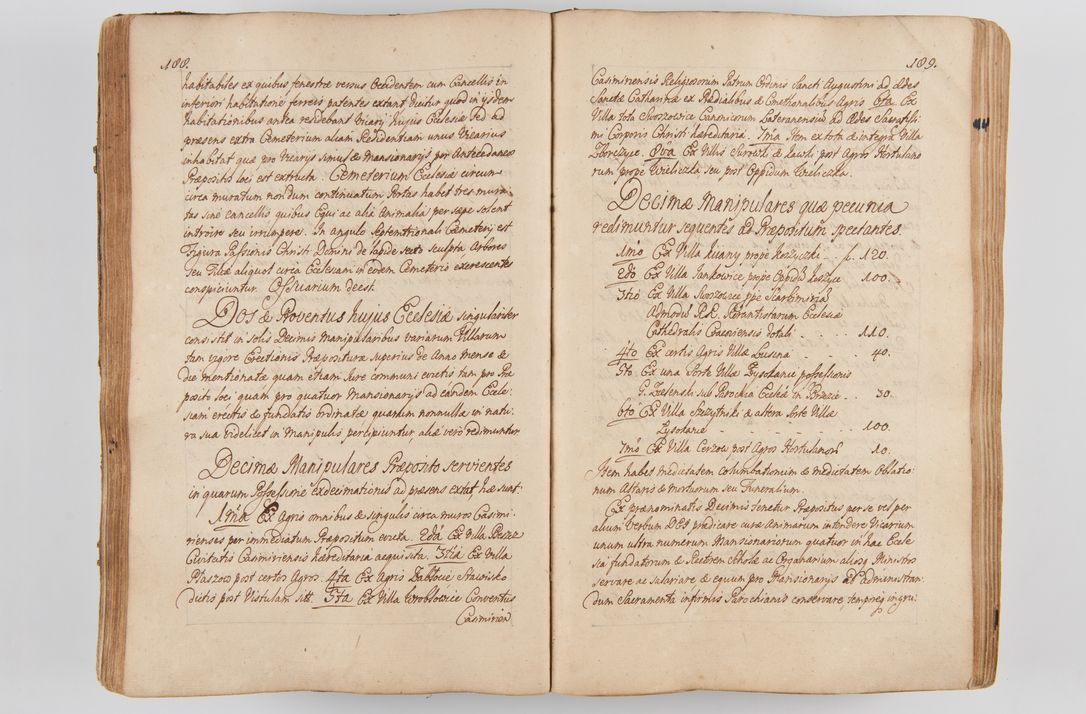 188.
habitabiles ex quibus fenestræ versus Occidentem cum Cancellis in
inferiori habitatione ferreis patentes extant dicitur quod in ijsdem
habitationibus antea residebant Vicarij hujus Ecclesiæ Sed ad
præsens extra Cemeterium aliam Residentiam unus Vicarius
inhabitat quæ pro Vicarijs simul & Mansionarijs per Antecedaneos
Præpositos loci est extructa. Cemeterium Ecclesiæ circum
circa muratum nondum continuatum Portas habet tres mura-
tas sine cancellis quibus Equi ac alia Animalia per sæpe solent
introire seu irrumpere. In angulo Septentrionali Cemeterij est
Figura Passionis Christi Domini de lapide secto sculpta Arbores
seu Tiliæ aliquot circa Ecclesiam in eodem Cemeterio excrescentes
conspiciuntur. Ossuarium deest.
Dos & Proventus hujus Ecclesiæ singulariter
consistit in solis Decimis Manipularibus variarum Villarum
tam vigore Erectionis Præpositura superius de Anno mense &
die mentionatæ quam etiam Jure communi evictis tam pro Præ
posito loci quam pro quatuor Mansionarijs ad eandem Eccle-
siam erectis & fundatis ordinatæ quarum nonnullæ in natu-
ra sua videlicet in Manipulis percipiuntur, aliæ vero redimuntur
Decimæ Manipulares Præposito servientes
in quarum Possessione exdecimationis ad præsens extat, hæ sunt
1ma Ex Agris omnibus & singulis circa muros Casimi-
rienses per immediatum Præpositum evicta. 2da Ex Villa Bessze
Civitatis Casimiriensis hæreditaria acquisita. 3tia Ex Villa
Plaszow post certos Agros. 4ta Ex Agris Zabłocie Stawisko
dictis post Vistulam sitt. 5ta Ex Villa Wroblowice Conventus
Casimirien
189.
Casimiriensis Religiosorum Patrum Ordinis Sancti Augustini ad Ædes
Sanctæ Catharinæ ex Prædialibus & Cmethonalibus Agris 6ta Ex
Villa tota Sworzowice Canonicorum Lateranensium ad Ædes Sacratissi
mi Corporis Christi hæreditaria. 7ma Item ex tota & integra Villa
Zborczyce. 8va Ex Villis Surowki & Pawli post Agros Hortulano
rum prope Wieliczka seu post Oppidum Wieliczka.
Decimæ Manipulares quæ pecunia
redimuntur sequentes ad Præpositum spectantes.
1mo Ex Villa Kuany prope Koszyczki . . f. 120.
2do Ex Villa Jankowice prope Oppidū Koszyce . 100.
3tio Ex Villa Sworzowice ppe Skarbimiria
Admodū RR. Rorantistarum Ecclesiæ
Cathedralis Cracoviensis dotali . . . . 110.
4to Ex certis Agris Villæ Lusina . . . . 40.
5to. Ex una Sorte Villæ Lysokanie possessionis
G. Zelenski sub Parochia Ecclesiæ in Brzezie . . 30.
6to Ex Villa Szczytniki & altera Sorte Villæ
Lysokanie . . . . . . 100.
7mo Ex Villa Cerzow post Agros Hortulanorū 10.
Item habet medietatem columbationum & medietatem Oblatio
num Altaris & mortuorum seu Funeralium.
Ex prænominatis Decimis tenetur Præpositus per se vel per
alium Verbum DEI prædicare curæ Animarum intendere Vicarium
unum ultra numerum Mansionariorum quatuor in hac Eccle
sia fundatorum & Rectorem Scholæ ac Organarium aliosq Ministros
servare ac salariare & equum pro Mansionarijs ad administran-
dum Sacramenta infirmis Parochianis conservare temporeq ingru-